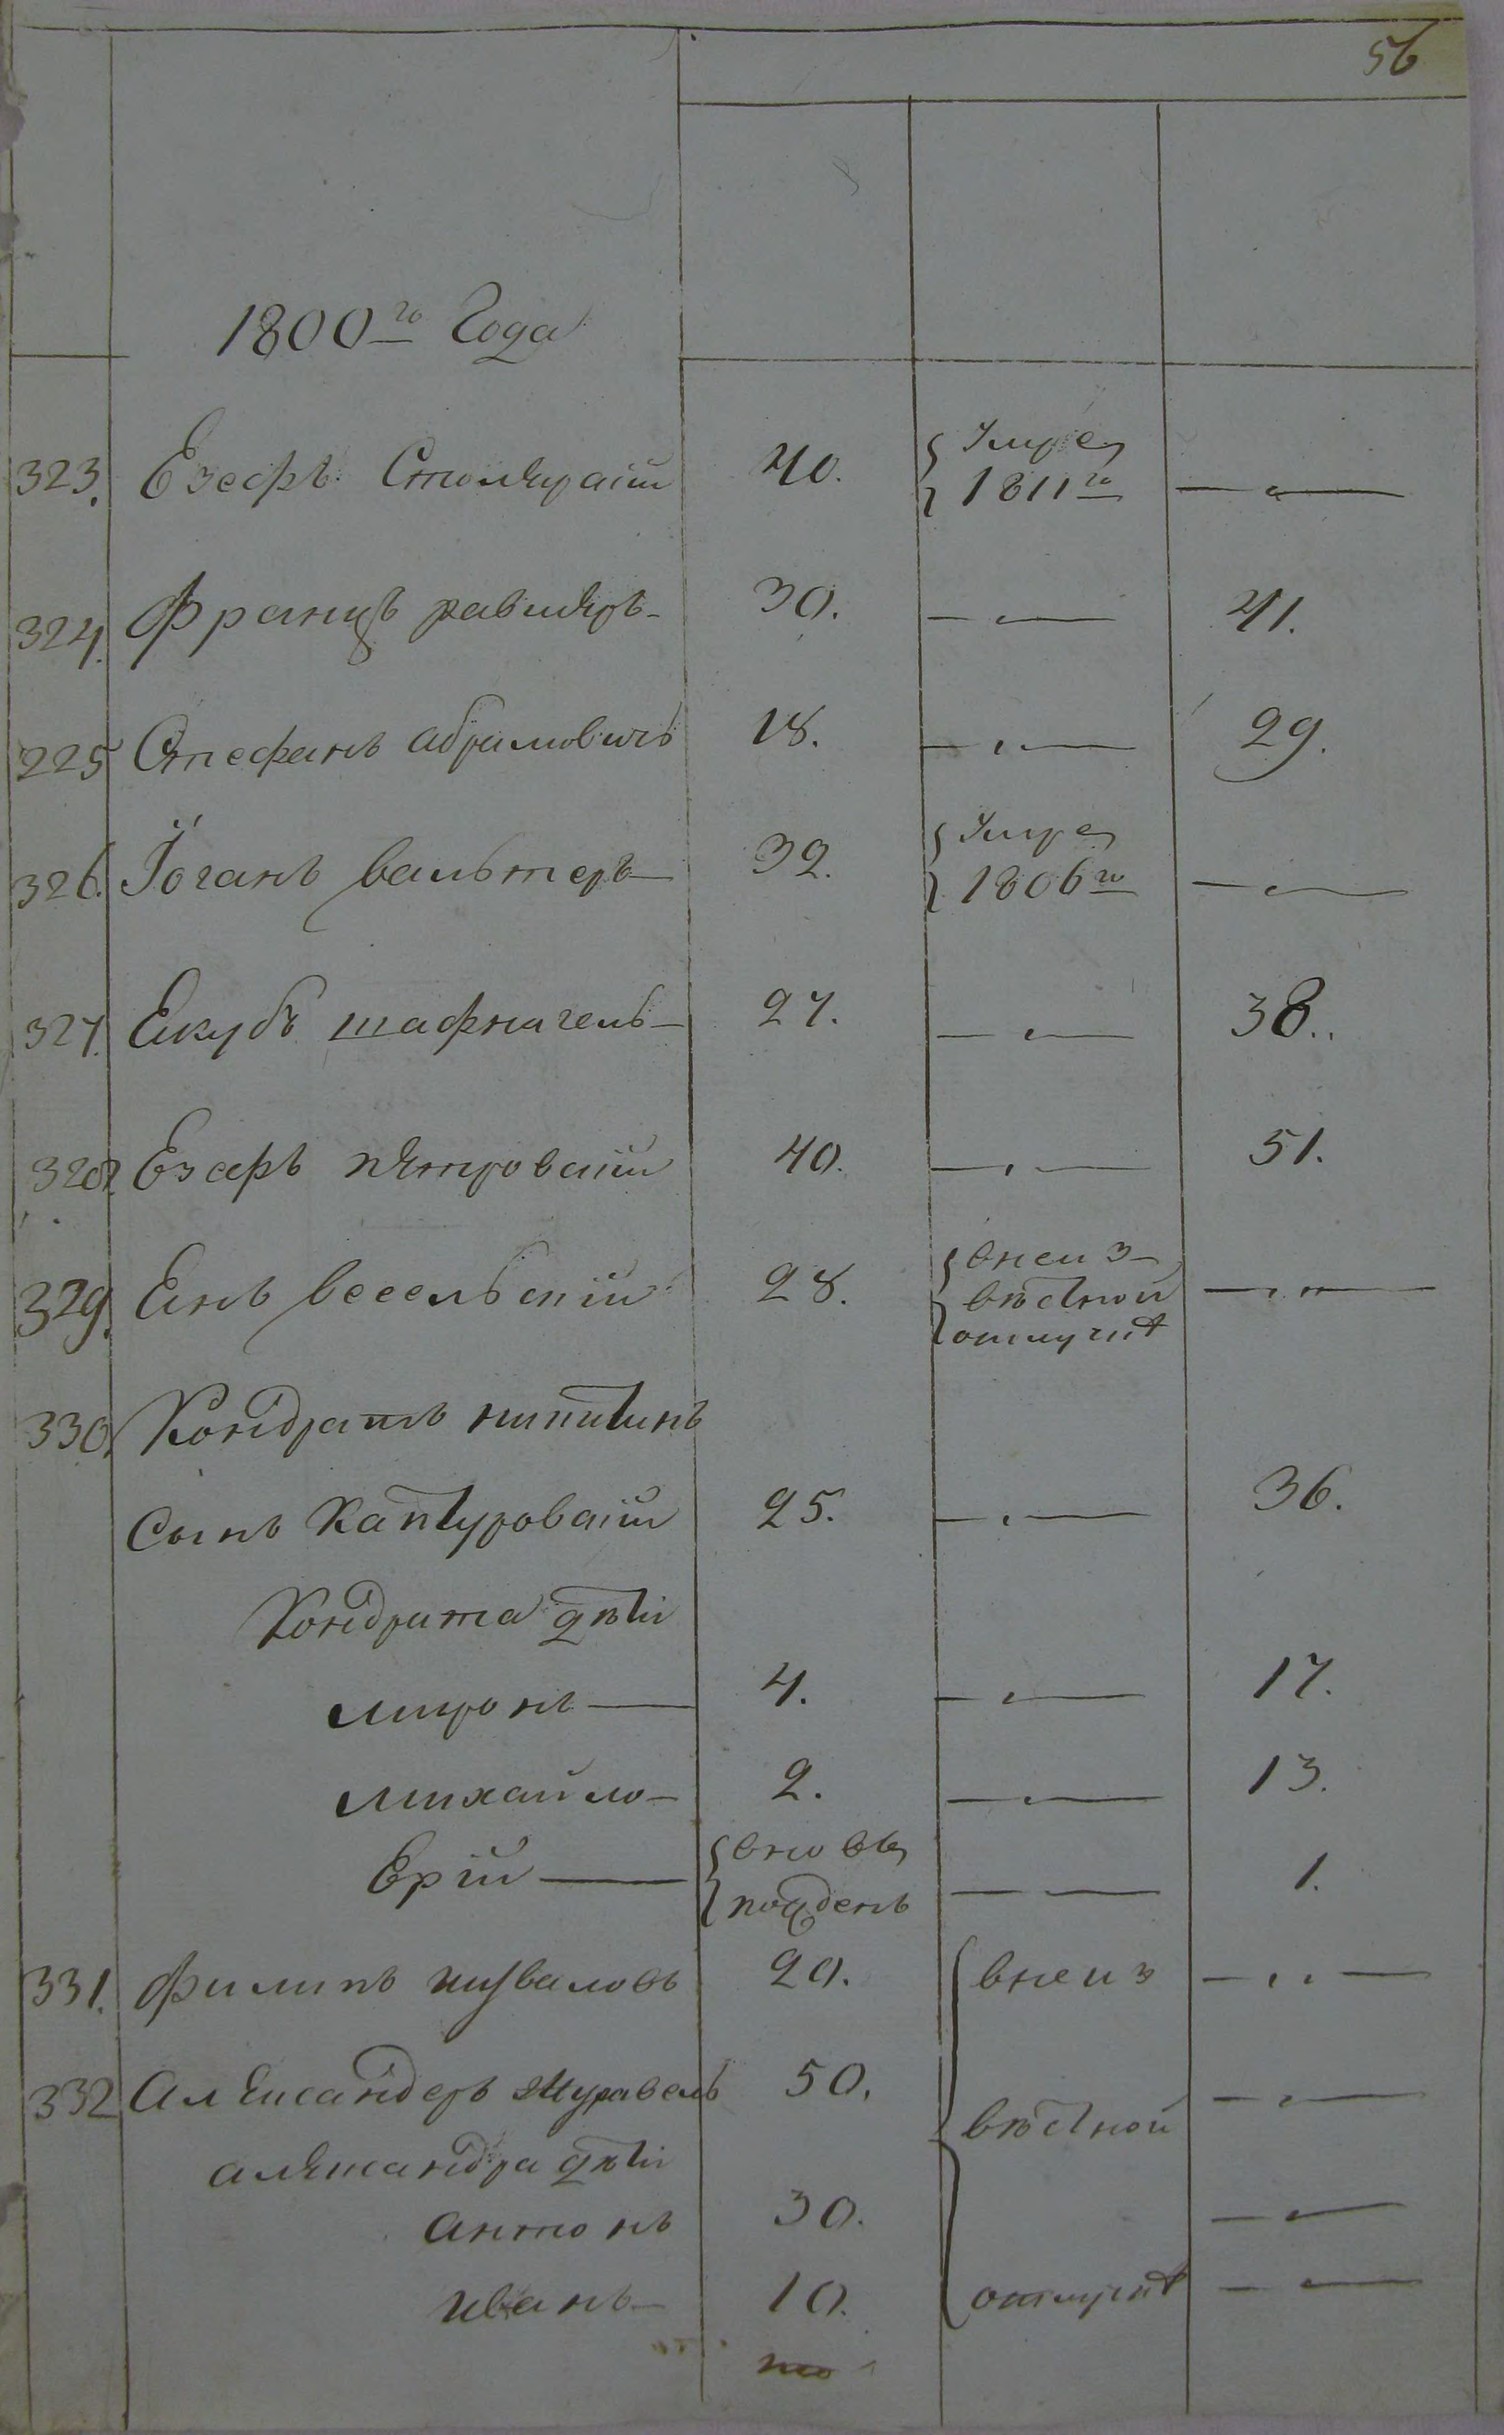 56
1800го Года
323. Езефъ Столярскій 40. Умре
1811го
324. Францъ равлюръ 30. 41.
225 Стефанъ абрамовичъ 18. 29.
326. Іоганъ вальтеръ 32. Умре
1806го
327. Екубъ шафнагель 27. 38.
328. Езефъ пѣтровскій 40. 51.
329. Енъ весельскій 28. внеиз
вѣстной
отлучкѣ
330. Кондратъ никитинъ
сынъ Кантуровскій 25. 36.
Кондрата дѣти
миронъ 4. 17.
михайло 2. 13.
Ерій вновь
рожденъ 1.
331. филипъ 20. внеиз
332 Александеръ журавель 50. вѣстной
александра дѣти
антонъ 30.
иванъ 10. отлучкѣ